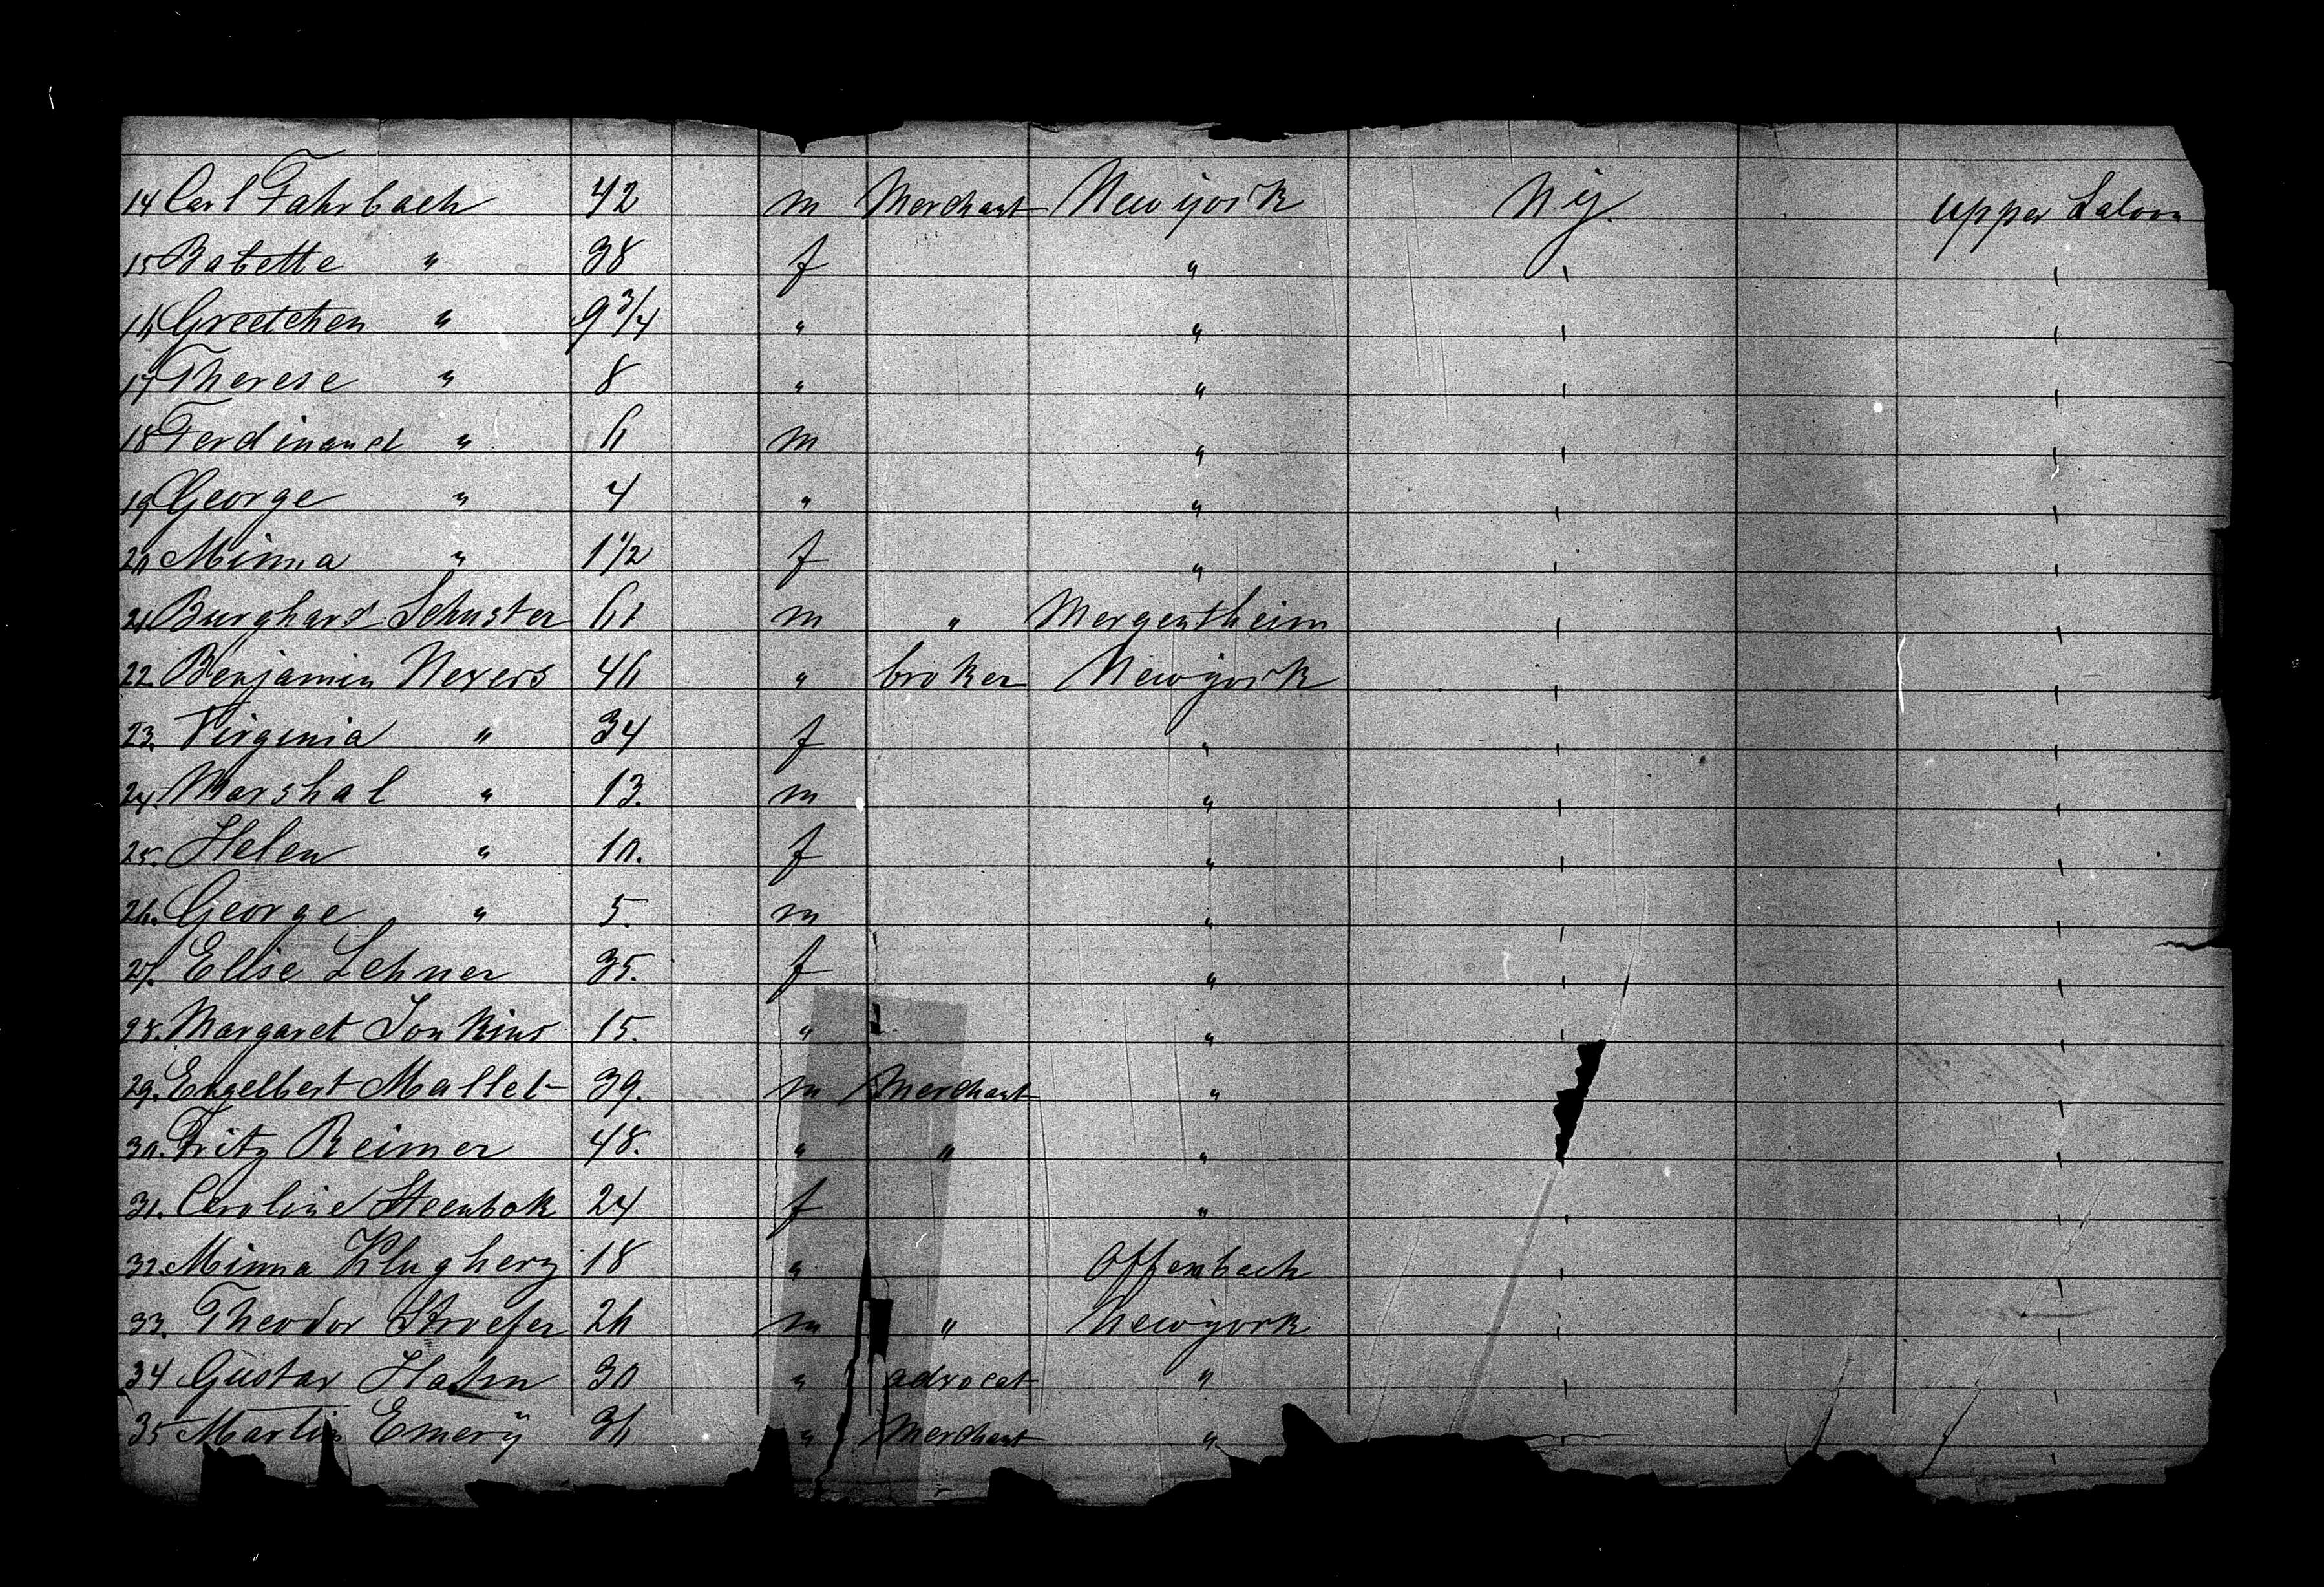 14 Carl Fahrbach 42 m Merchant Newyork N.y. upper Saloon
15 Babette " 38 f " " "
16 Greetchen " 9 3/4 " " " "
17 Therese " 8 " " " "
18 Ferdinand " 6 m " " "
19 George " 4 " " " "
20 Minna " 1 1/2 f " " "
21. Burghard Schuster 61 m " Mergentheim " "
22. Benjamin Nevers 46 " broker Newyork " "
23. Virginia " 34 f " " "
24. Marshal " 13. m " " "
25. Helen " 10. f " " "
26. George " 5. m " " "
27. Elise Lehner 35. f " " "
28. Margaret Jonkins 15. " " " "
29. Engelbert Mallet 39. m Merchant " "
30. Fritz Reimer 48. " " " "
31. Caroline Steenbok 24 f " " "
32. Minna Klugherz 18 " Offenbach " "
33. Theodor Stroefer 26 m " Newyork " "
34 Gustav Hahn 30 " advocat " " "
35 Martin Emery 36 " Merchant " " "